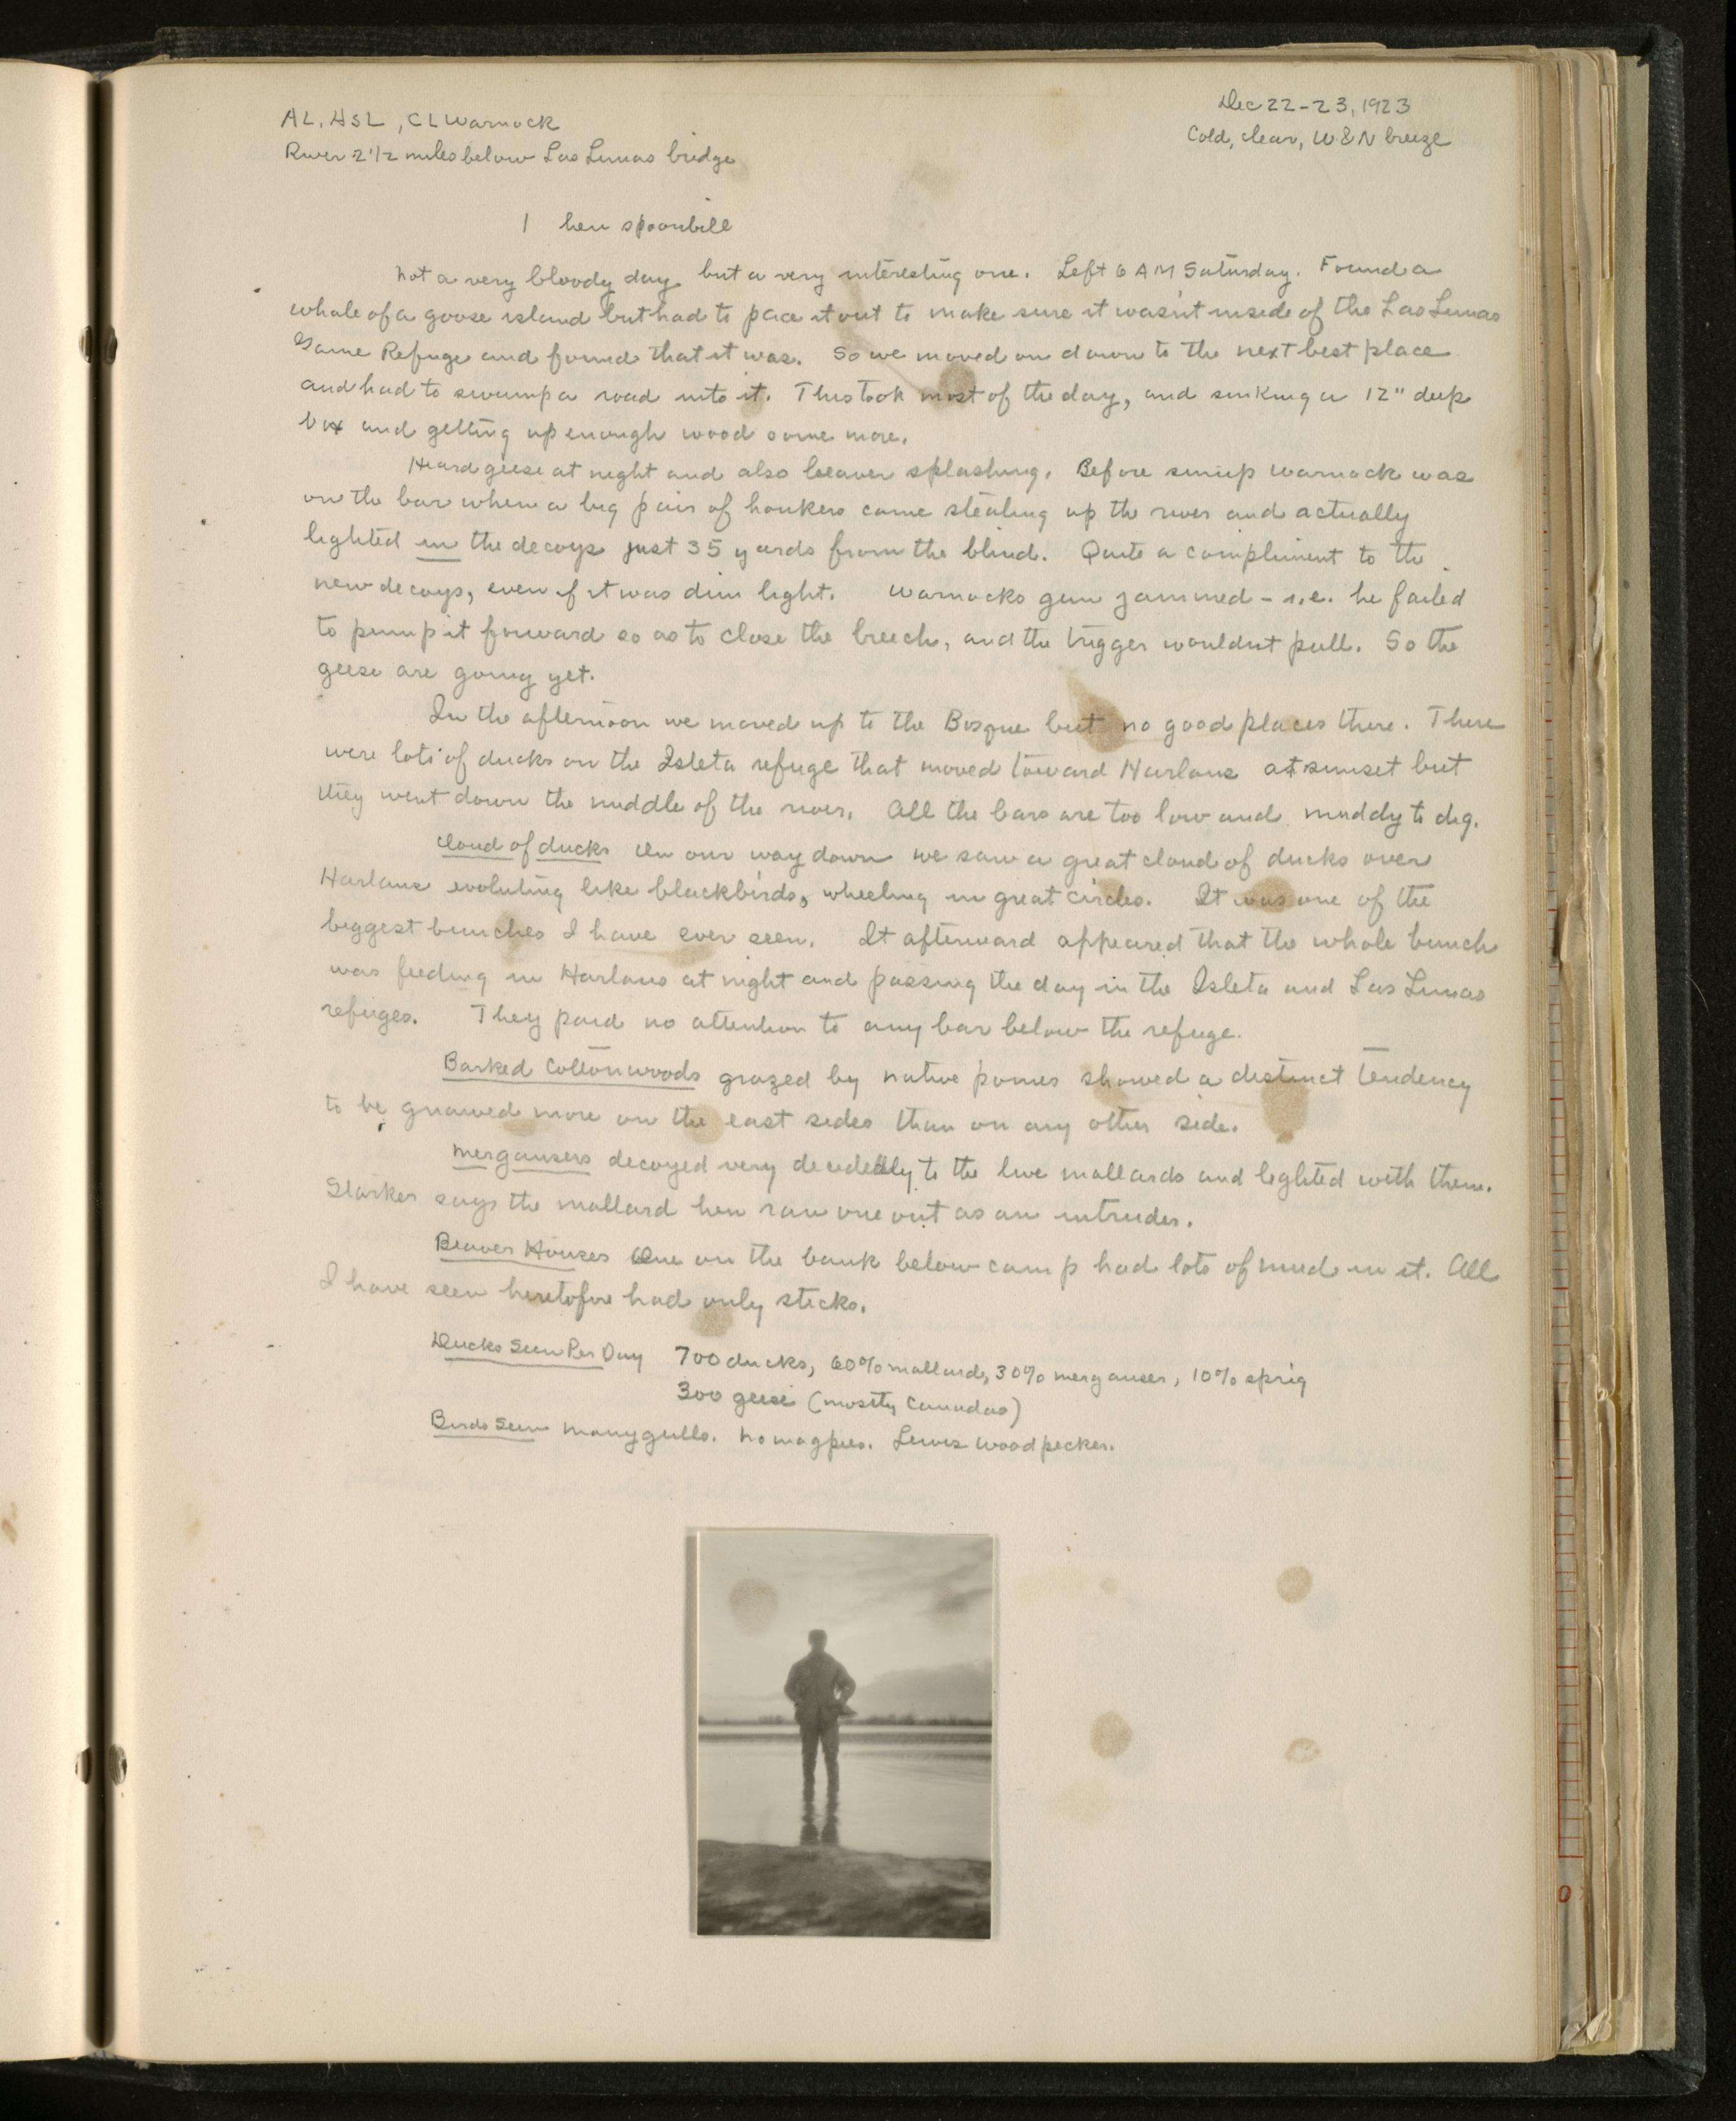 Dec 22-23, 1923
AL, HSL, CL Warnock
Cold, clear, W & N breeze
River 2 1/2 miles below Las Lunas bridge
1 hen spoonbill
Not a very bloody day but a very interesting one. Left 6 AM Saturday. Found a
whale of a goose island but had to pace it out to make sure it wasn't inside of the Las Lunas
Game Refuge and found that it was. So we moved on down to the next best place
and had to swamp a road into it. This took most of the day, and sinking a 12" deep
box and getting up enough wood some more.
Heard geese at night and also beaver splashing. Before sunup Warnock was
on the bar when a big pair of honkers came stealing up the river and actually
lighted in the decoys just 35 yards from the blind. Quite a compliment to the
new decoys, even if it was dim light. Warnocks gun jammed - i.e. he failed
to pump it forward so as to close the breech, and the trigger wouldnt pull. So the
geese are going yet.
In the afternoon we moved up to the Bosque but no good places there. There
were lots of ducks on the Isleta refuge that moved toward Harlans at sunset but
they went down the middle of the river. All the bars are too low and muddy to dig.
Cloud of ducks On our way down we saw a great cloud of ducks over
Harlans evoluting like blackbirds, wheeling in great circles. It was one of the
biggest bunches I have ever seen. It afterward appeared that the whole bunch
was feeding in Harlans at night and passing the day in the Isleta and Las Lunas
refuges. They paid no attention to any bar below the refuge.
Barked Cottonwoods grazed by native ponies showed a distinct tendency
to be gnawed more on the east sides than on any other side.
Mergansers decoyed very decidedly to the live mallards and lighted with them.
Starker says the mallard hen ran one out as an intruder.
Beaver Houses One on the bank below camp had lots of mud in it. All
I have seen heretofore had only sticks.
Ducks Seen Per Day 700 ducks, 60% mallard, 30% merganser, 10% sprig
300 geese (mostly Canadas)
Birds Seen Many gulls. No magpies. Lewis Woodpecker.